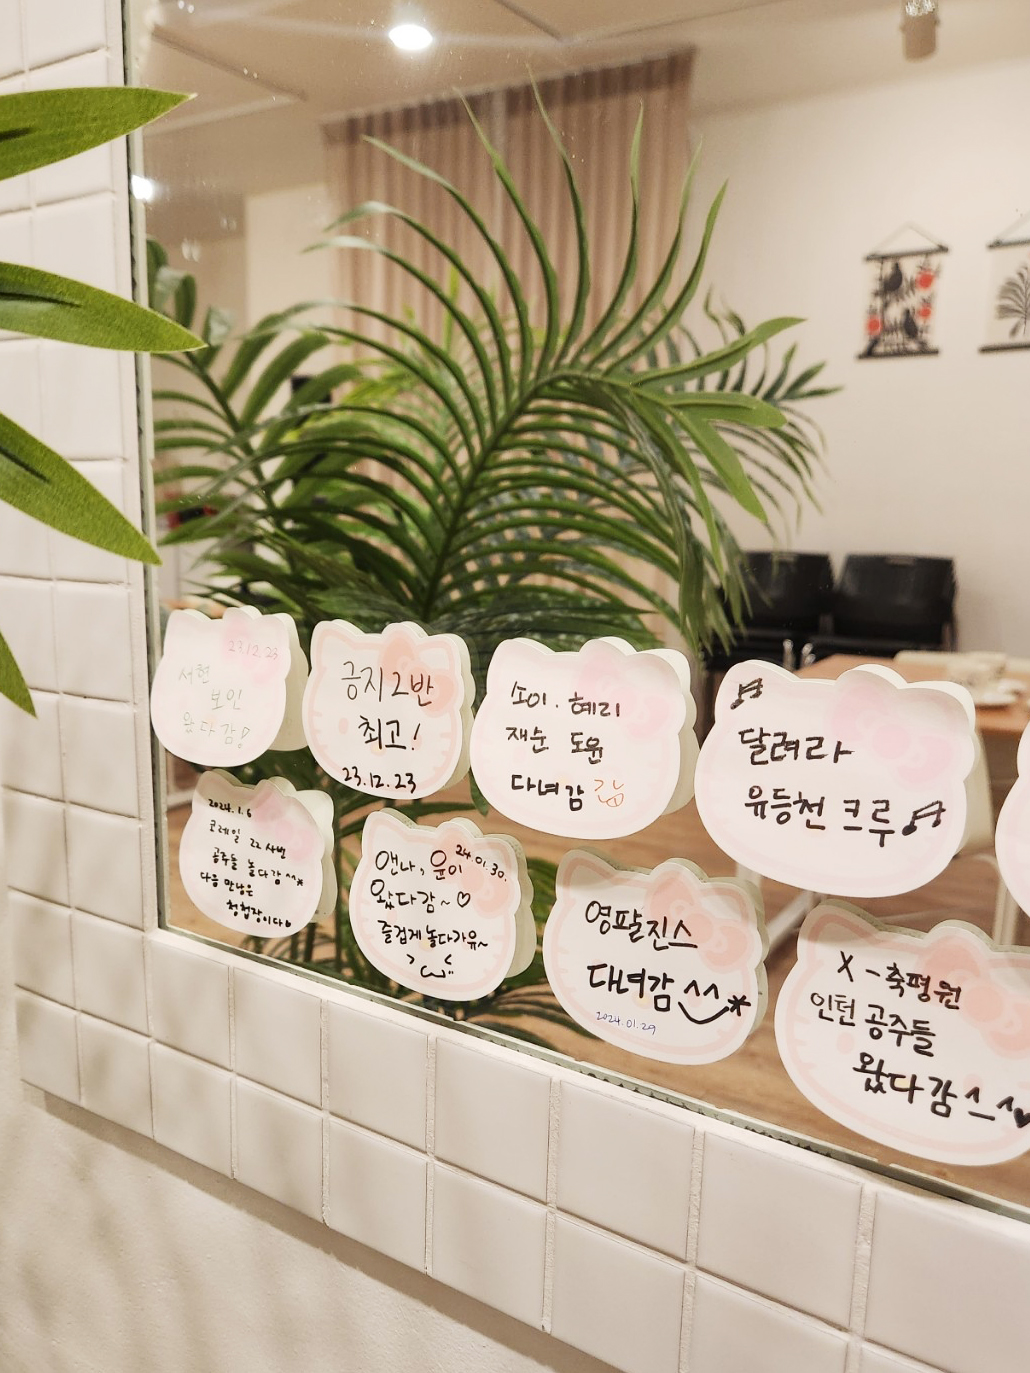 23.12.23
서현
보인
왔다감!
긍지2반
최고!
23.12.23
소이. 혜리
재순 도윤
다녀감
달려라
유등천 크루
2024.1.6
코레일 22사번
공주들 놀다감 ^^*
다음 만남은
청첩장이다♥
24.01.30.
앤나, 윤이
왔다감~♡
즐겁게 놀다가유~
영팔진스
다녀감 ^^*
2024.01.29
X-축평원
인턴 공주들
왔다감 ^_^♥